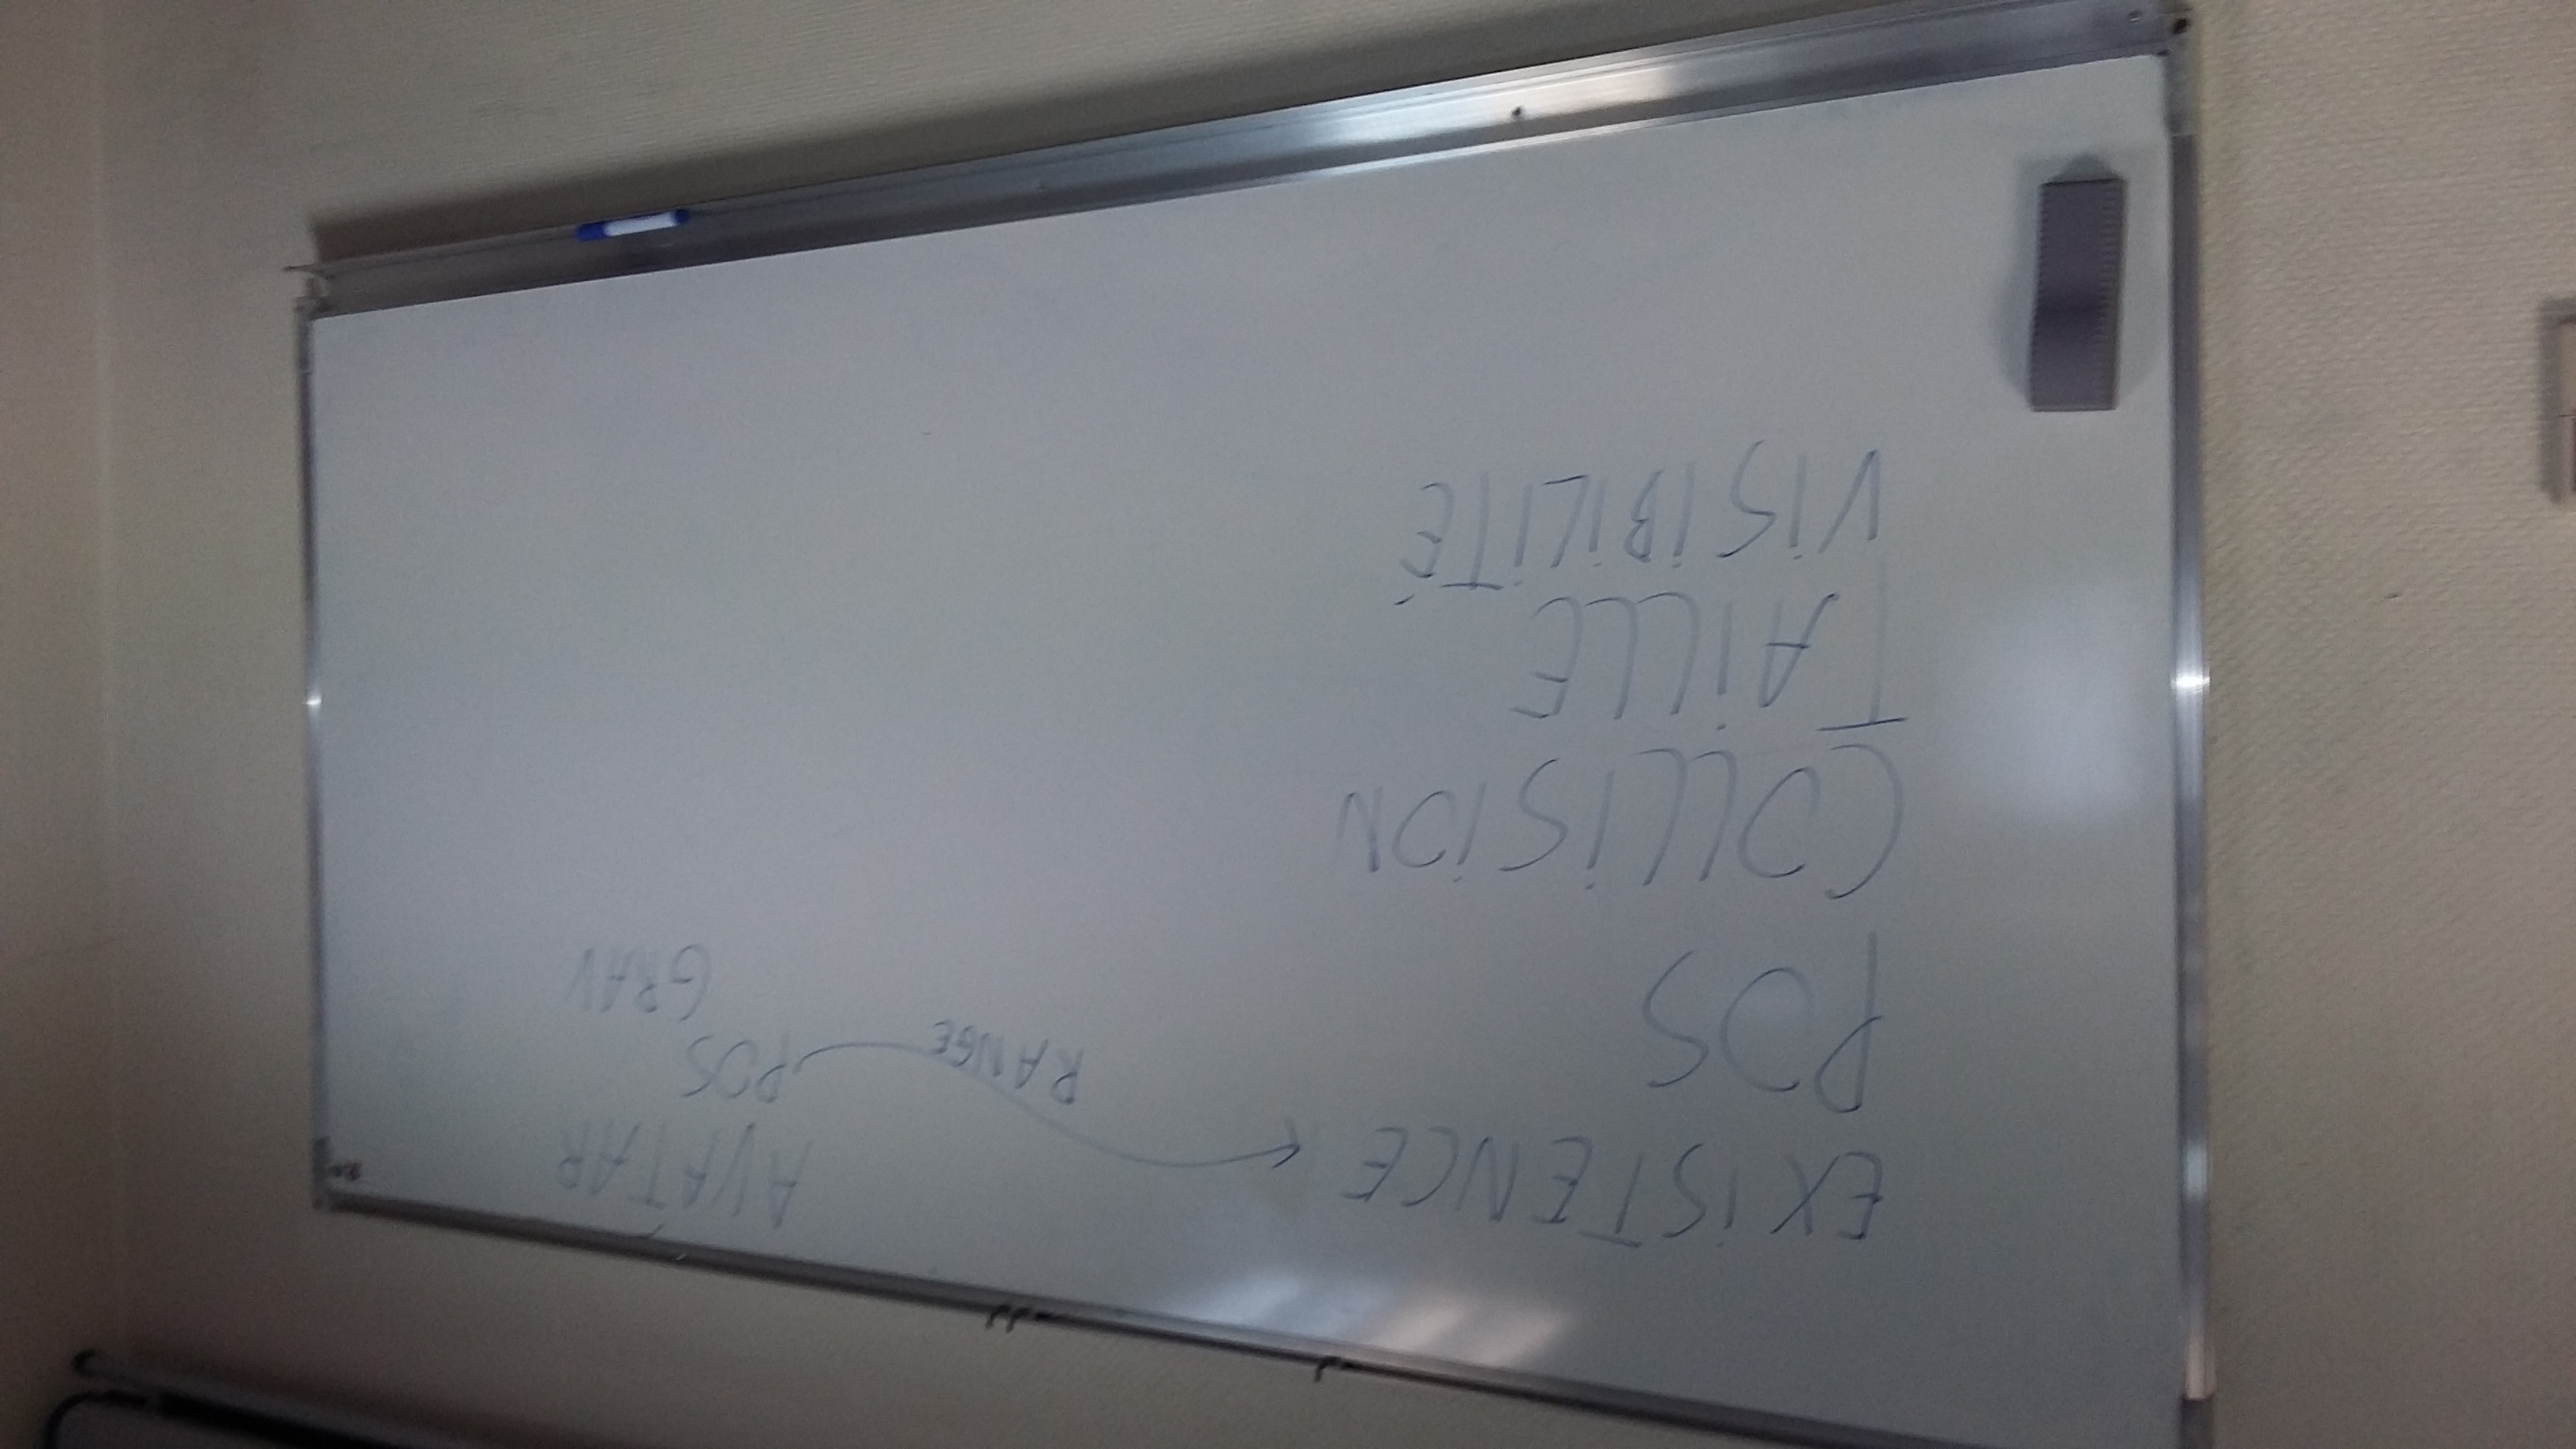 EXISTENCE
POS
COLLISION
TAILLE
VISIBILITÉ
RANGE
AVATAR
POS
GRAV